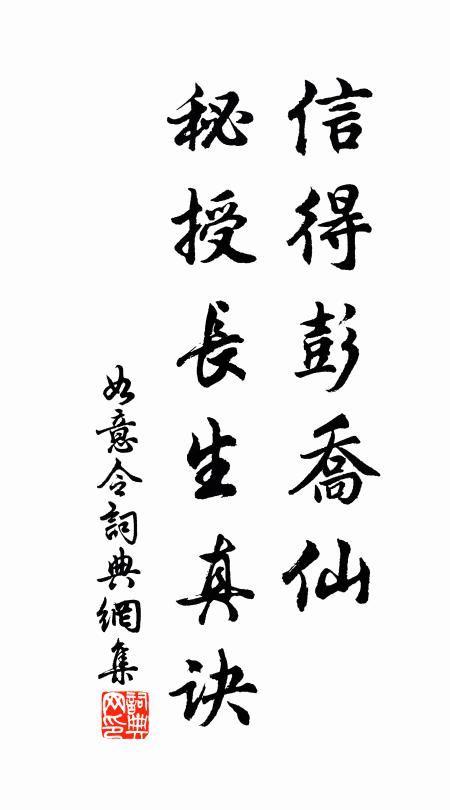 信得彭喬仙
秘授長生真訣
如意令詞典網集
詞典网印